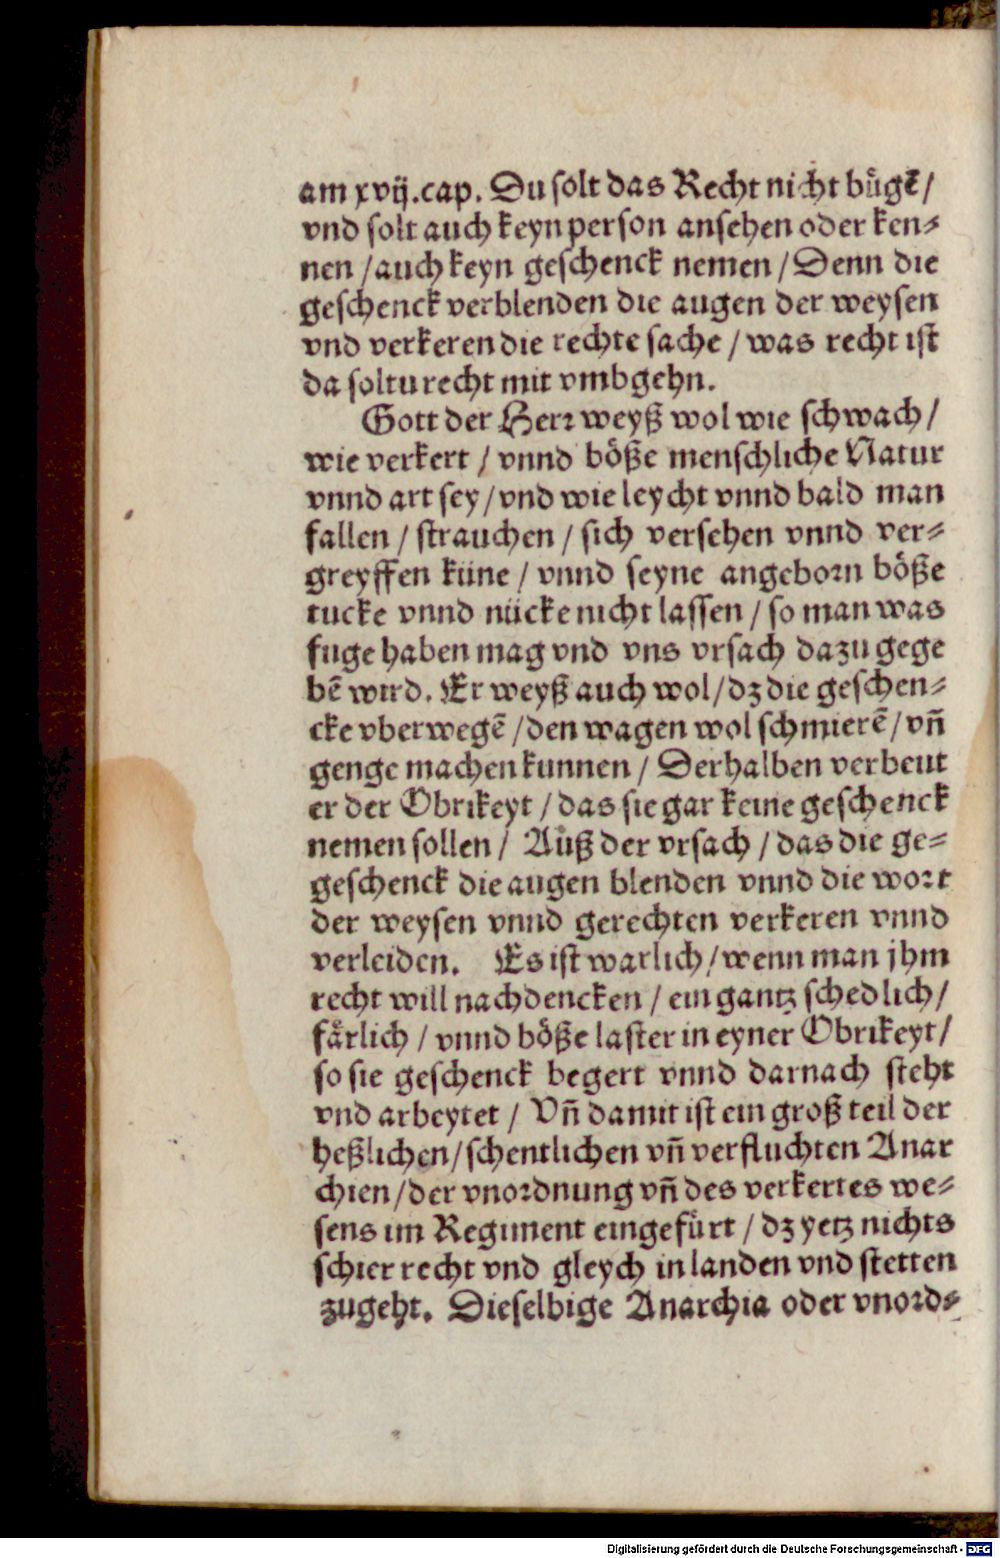 am xvij.cap. Du solt das Recht nicht bůgē/
vnd solt auch keyn person ansehen oder ken⸗
nen / auch keyn geschenck nemen / Denn die
geschenck verblenden die augen der weysen
vnd verkeren die rechte sache / was recht ist
da soltu recht mit vmbgehn.
Gott der Herr weyß wol wie schwach /
wie verkert / vnnd böße menschliche Natur
vnnd art sey / vnd wie leycht vnnd bald man
fallen / strauchen / sich versehen vnnd ver⸗
greyffen küne / vnnd seyne angeborn böße
tucke vnnd nücke nicht lassen / so man was
fuge haben mag vnd vns vrsach dazu gege
bē wird. Er weyß auch wol / dz die geschen⸗
cke vberwegē / den wagen wol schmierē / vn̄
genge machen kunnen / Derhalben verbeut
er der Obrikeyt / das sie gar keine geschenck
nemen sollen / Auß der vrsach / das die ge⸗
geschenck die augen blenden vnnd die wort
der weysen vnnd gerechten verkeren vnnd
verleiden. Es ist warlich / wenn man jhm
recht will nachdencken / ein gantz schedlich /
färlich / vnnd böße laster in eyner Obrikeyt /
so sie geschenck begert vnnd darnach steht
vnd arbeytet / Vn̄ damit ist ein groß teil der
heßlichen / schentlichen vn̄ verfluchten Anar
chien / der vnordnung vn̄ des verkertes we⸗
sens im Regiment eingefürt / dz yetz nichts
schier recht vnd gleych in landen vnd stetten
zugeht. Dieselbige Anarchia oder vnord⸗
Digitalisierung gefördert durch die Deutsche Forschungsgemeinschaft - DFG